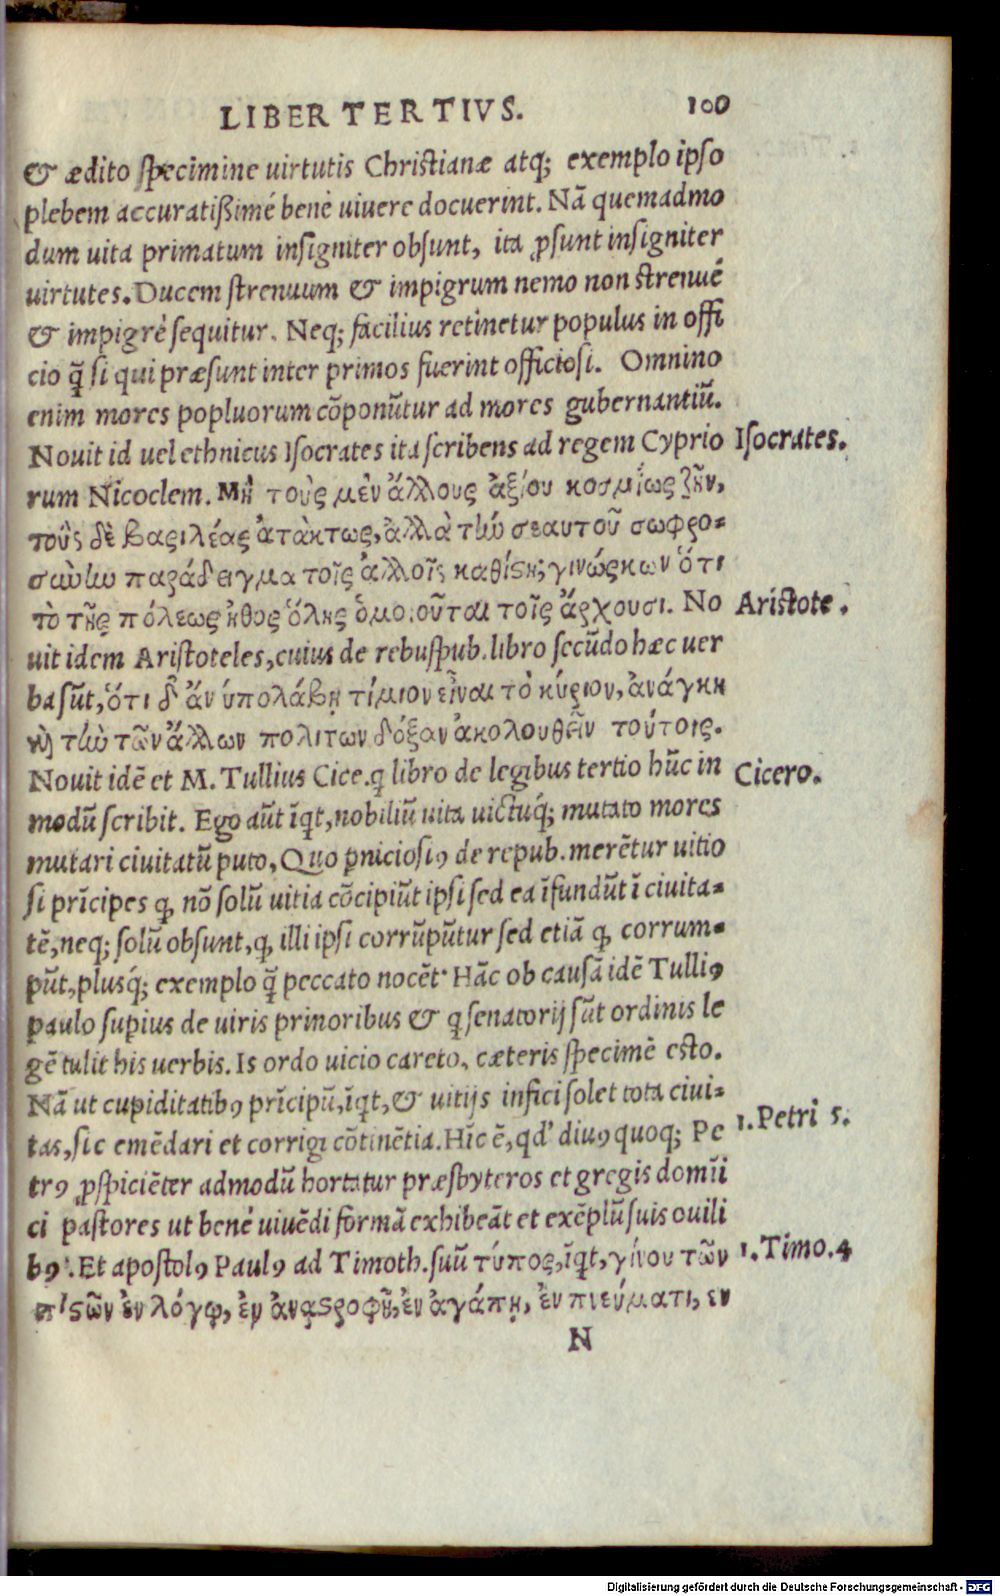 LIBER TERTIVS. 100
& ædito specimine uirtutis Christianæ atq; exemplo ipso
plebem accuratißimé bené uiuere docuerint. Nā quemadmo
dum uita primatum insigniter obsunt, ita ꝓsunt insigniter
uirtutes. Ducem strenuum & impigrum nemo non strenué
& impigré sequitur. Neq; facilius retinetur populus in offi
cio q̃ si qui præsunt inter primos fuerint officiosi. Omnino
enim mores popluorum cōponūtur ad mores gubernantiū.
Nouit id uel ethnicus Isocrates ita scribens ad regem Cyprio
Isocrates.
rum Nicoclem. Μὴ τοὺς μὲν ἄλλους ἀξίου κοσμίως ζῆν,
τοὺς δὲ βασιλέας ἀτάκτως, ἀλλὰ τὼ σεαυτοῦ σωφρο-
σωὼ παράδειγμα τοῖς ἀλλοῖς καθίϛη; γινώσκων ὅτι
τὸ τῆς πόλεως ἠθος ὅλης ὁμοιοῦται τοῖς ἄρχουσι. No
Aristote.
uit idem Aristoteles, cuius de rebuspub. libro secūdo hæc uer
ba sūt, ὅτι δ' ἄν ὑπολάβῃ τίμιον εἶναι τὸ κύριον, ἀνάγκη
ϗ τὼ τῶν ἄλλων πολιτων δόξαν ἀκολουθεῖν τούτοις.
Nouit idē et M. Tullius Cice. ꝗ libro de legibus tertio hūc in
Cicero.
modū scribit. Ego aūt īqt, nobiliū uita uictuq́; mutato mores
mutari ciuitatū puto, Quo ꝑniciosiꝰ de repub. merētur uitio
si prīcipes ꝙ nō solū uitia cōcipiūt ipsi sed ea īfundūt ī ciuita-
tē, neq; solū obsunt, ꝙ illi ipsi corrūpūtur sed etiā ꝙ corrum-
pūt, plusq́; exemplo q̃ peccato nocēt. Hāc ob causā idē Tulliꝰ
paulo suꝑius de uiris primoribus & ꝗ senatorij sūt ordinis le
gē tulit his uerbis. Is ordo uicio careto, cæteris specimē esto.
Nā ut cupiditatibꝰ prīcipū, īqt, & uitijs infici solet tota ciui-
tas, sic emēdari et corrigi cōtinētia. Hīc ē, qd' diuꝰ quoq; Pe
1. Petri 5.
trꝰ ꝓspiciēter admodū hortatur præsbyteros et gregis domīi
ci pastores ut bené uiuēdi formā exhibeāt et exēplū suis ouili
bꝰ. Et apostolꝰ Paulꝰ ad Timoth. suū τύπος, īqt, γίνου τῶν
1. Timo. 4
πιϛῶν ἐν λόγῳ, ἐν ἀναϛροφῇ, ἐν ἀγάπῃ, ἐν πνεύματι, ἐν
N
Digitalisierung gefördert durch die Deutsche Forschungsgemeinschaft - DFG